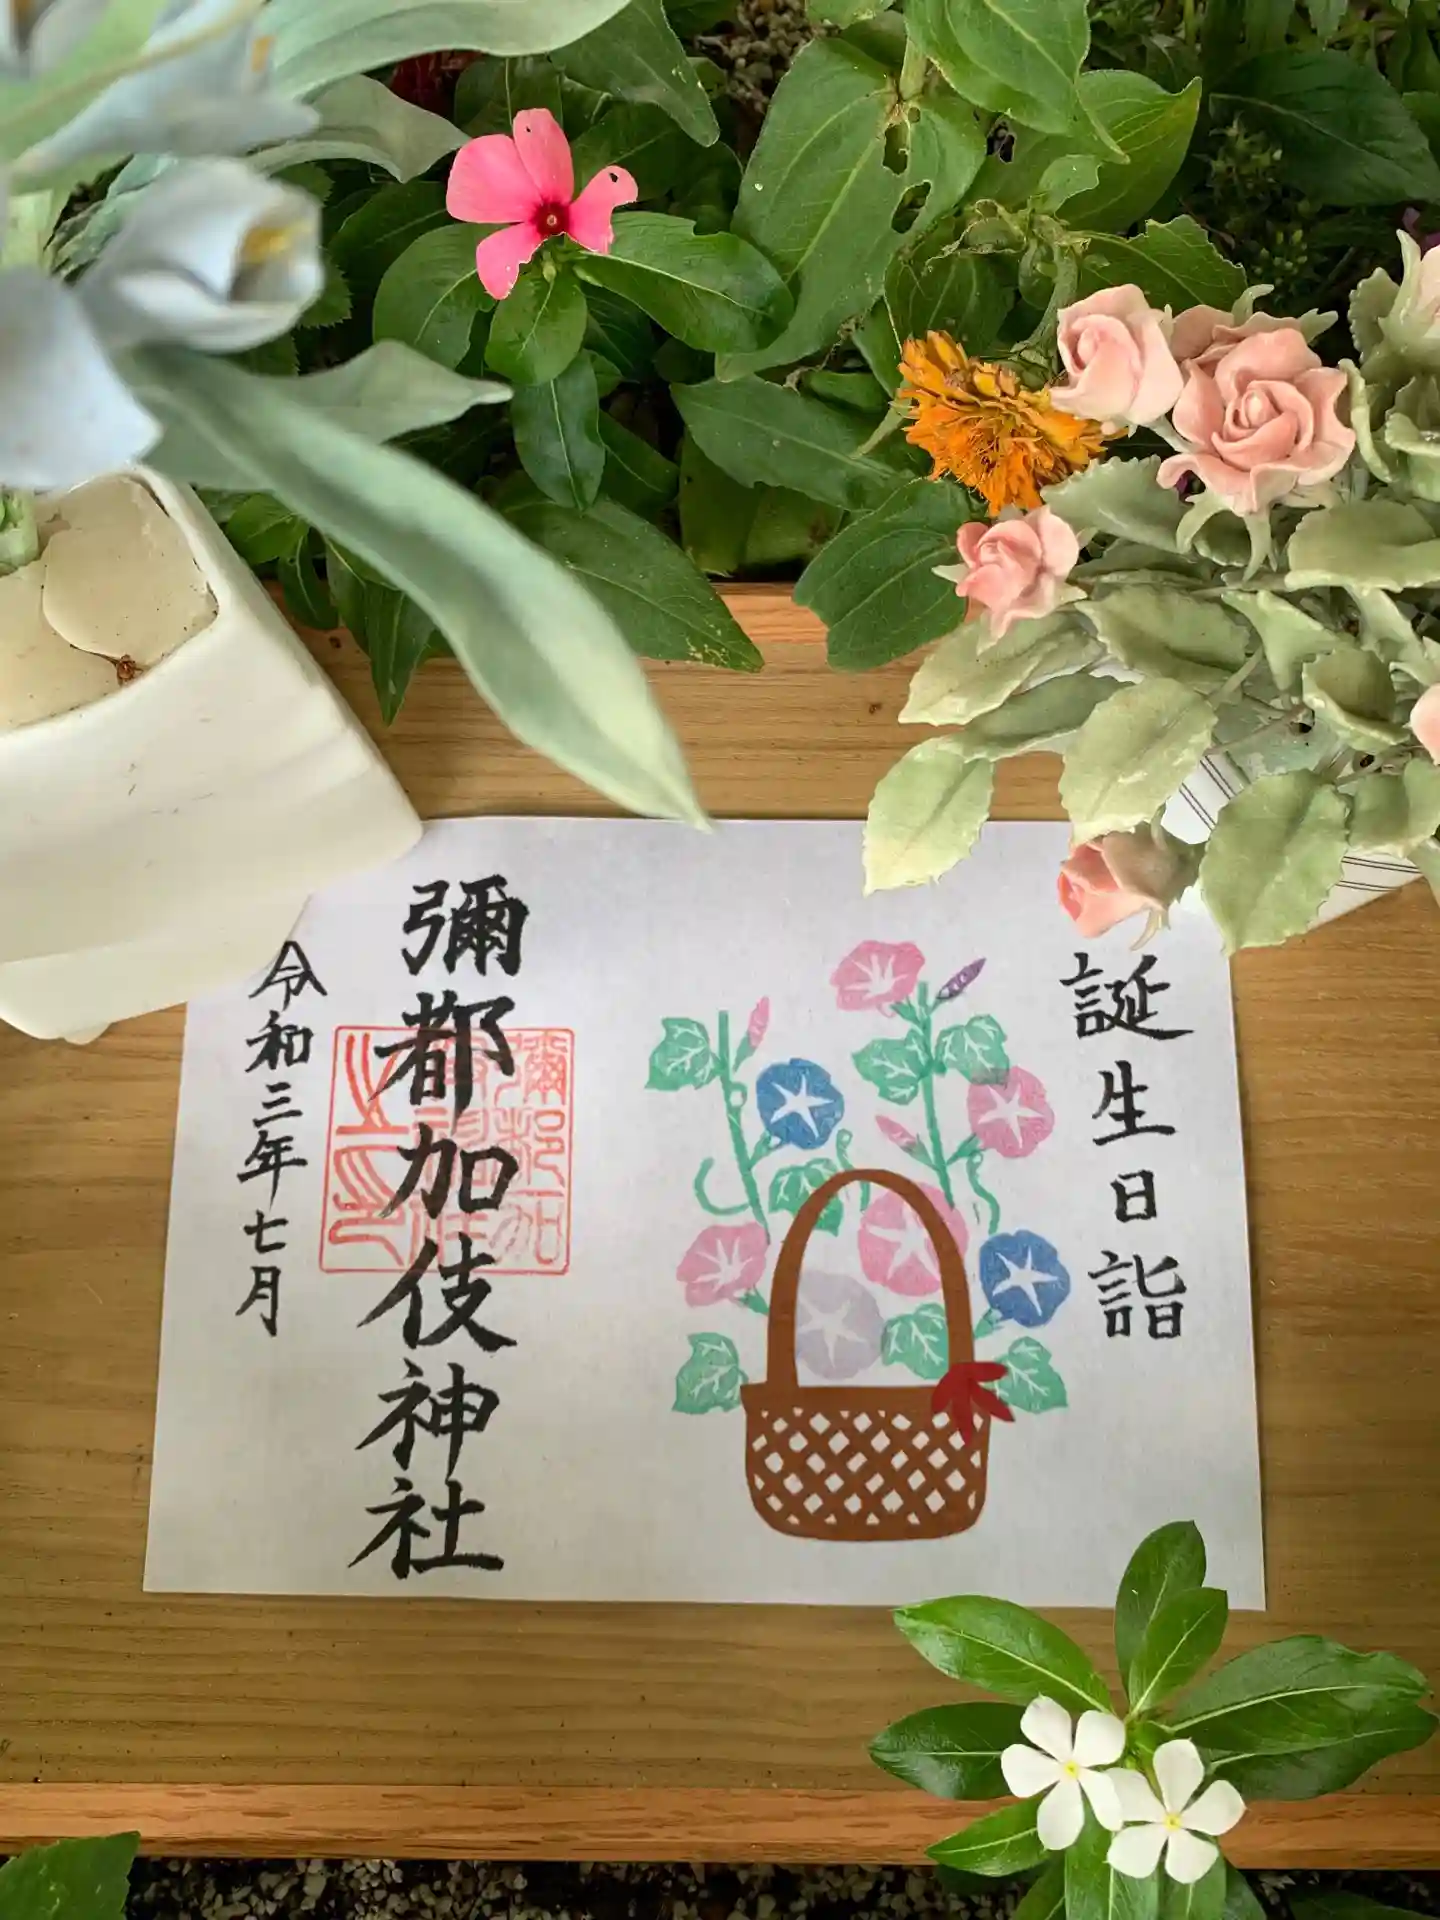 誕生日詣
彌都加伎神社
令和三年七月